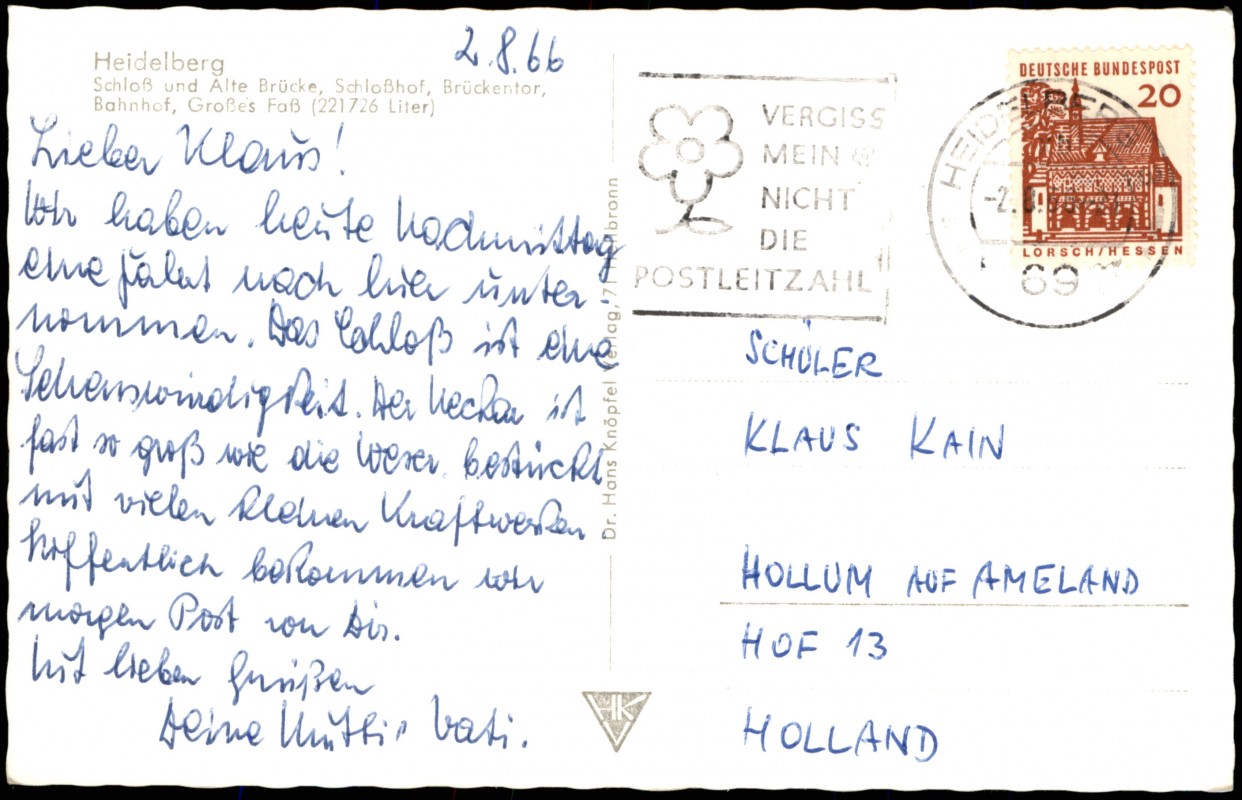 2.8.66
Heidelberg
Schloß und Alte Brücke, Schloßhof, Brückentor,
Bahnhof, Großes Faß (221726 Liter)
Lieber Klaus!
Wir haben heute Nachmittag
eine Fahrt nach hier unter-
nommen. Das Schloß ist eine
Sehenswürdigkeit. Der Neckar ist
fast so groß wie die Weser, bestückt
mit vielen kleinen Kraftwerken
Hoffentlich bekommen wir
morgen Post von Dir.
Mit lieben Grüßen
Deine Mutti u Vati.
Dr. Hans Knöpfel Verlag, 71 Heilbronn
HK
VERGISS
MEIN
NICHT
DIE
POSTLEITZAHL
HEIDELBERG
-2.8.
69
DEUTSCHE BUNDESPOST
20
LORSCH/HESSEN
SCHÜLER
KLAUS KAIN
HOLLUM AUF AMELAND
HOF 13
HOLLAND